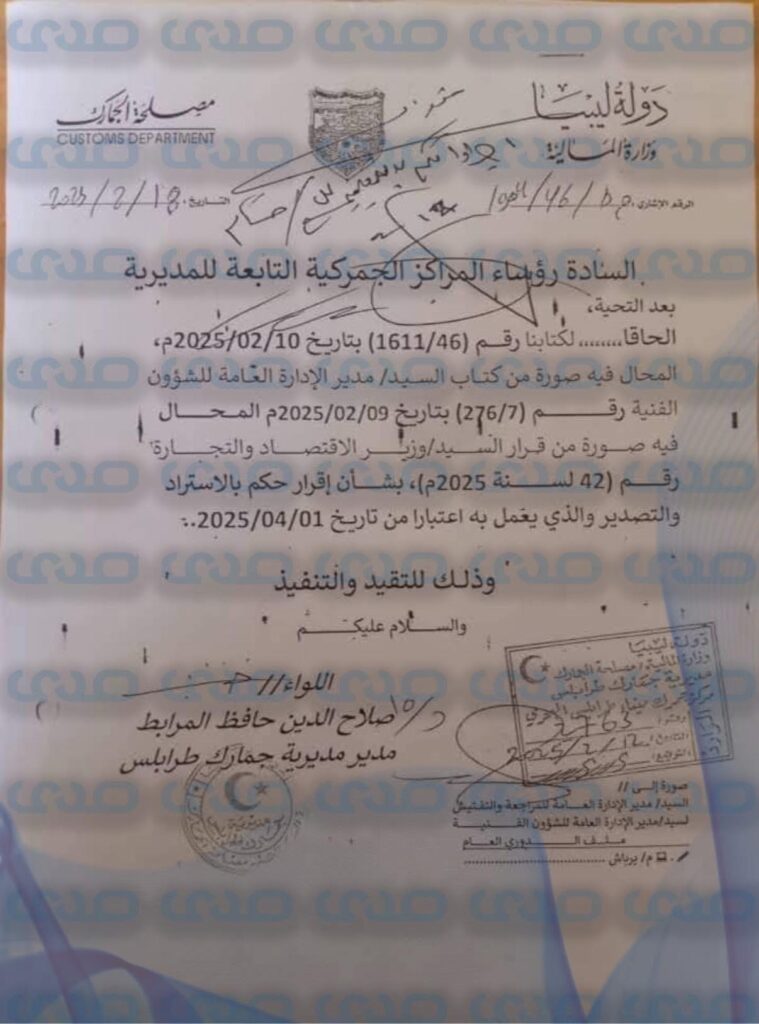 دولة ليبيا
وزارة المالية
مصلحة الجمارك
CUSTOMS DEPARTMENT
الرقم الإشاري
التاريخ: 2025/2/18
السادة رؤساء المراكز الجمركية التابعة للمديرية
بعد التحية،
الحاقا........لكتابنا رقم (1611/46) بتاريخ 2025/02/10م،
المحال فيه صورة من كتاب السيد/ مدير الإدارة العامة للشؤون
الفنية رقم (276/7) بتاريخ 2025/02/09م المحال
فيه صورة من قرار السيد/وزير الاقتصاد والتجارة
رقم (42 لسنة 2025م)، بشأن إقرار حكم بالاستراد
والتصدير والذي يعمل به اعتبارا من تاريخ 2025/04/01..
وذلك للتقيد والتنفيذ
والسلام عليكم
اللواء//
صلاح الدين حافظ المرابط
مدير مديرية جمارك طرابلس
دولة ليبيا
وزارة المالية/ مصلحة الجمارك
مديرية جمارك طرابلس
صورة إلى //
السيد/ مدير الإدارة العامة للمراجعة والتفتيش
لسيد/مدير الإدارة العامة للشؤون الفنية
ملف الدوري العام
م/ يرباش
صدى